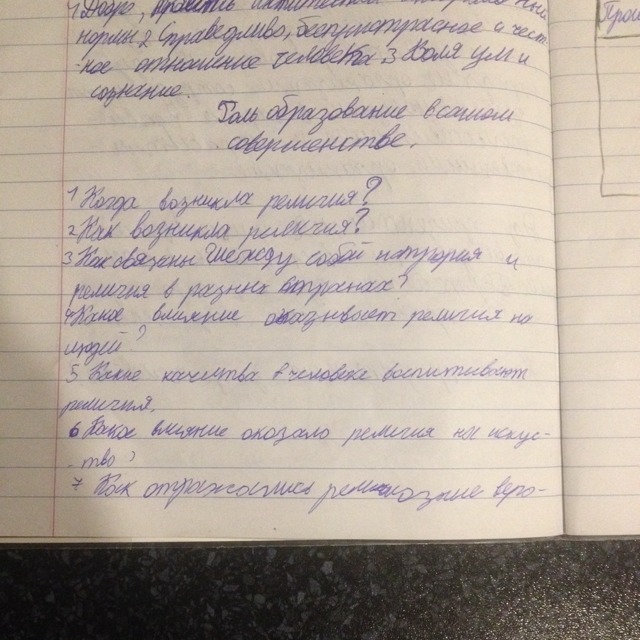 1 Добро,
нормы 2 Справедливо, беспристрасное и чест
-ное отношение человека 3 Воля ум и
сознание.
Голь образование в самом
совершенстве.
1 Когда возникла религия?
2 Как возникла религия?
3 Как связаны между собой природа и
религия в разных странах?
4 Какое влияние оказывает религия на
людей?
5 Какие качества в человека воспитывает
религия.
6 Какое влияние оказало религия на искус-
-тво?
7 Как отражались религиозние веро-